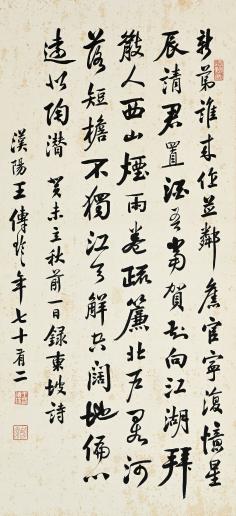 新第誰來作並鄰舊官寧復憶星
辰請君置酒吾當賀知向江湖拜
散人西山煙雨卷疏簾北戶星河
落短檐不獨江天解空闊地偏心
遠似陶潛 癸未立秋前一日錄東坡詩
漢陽王傳 年七十有二